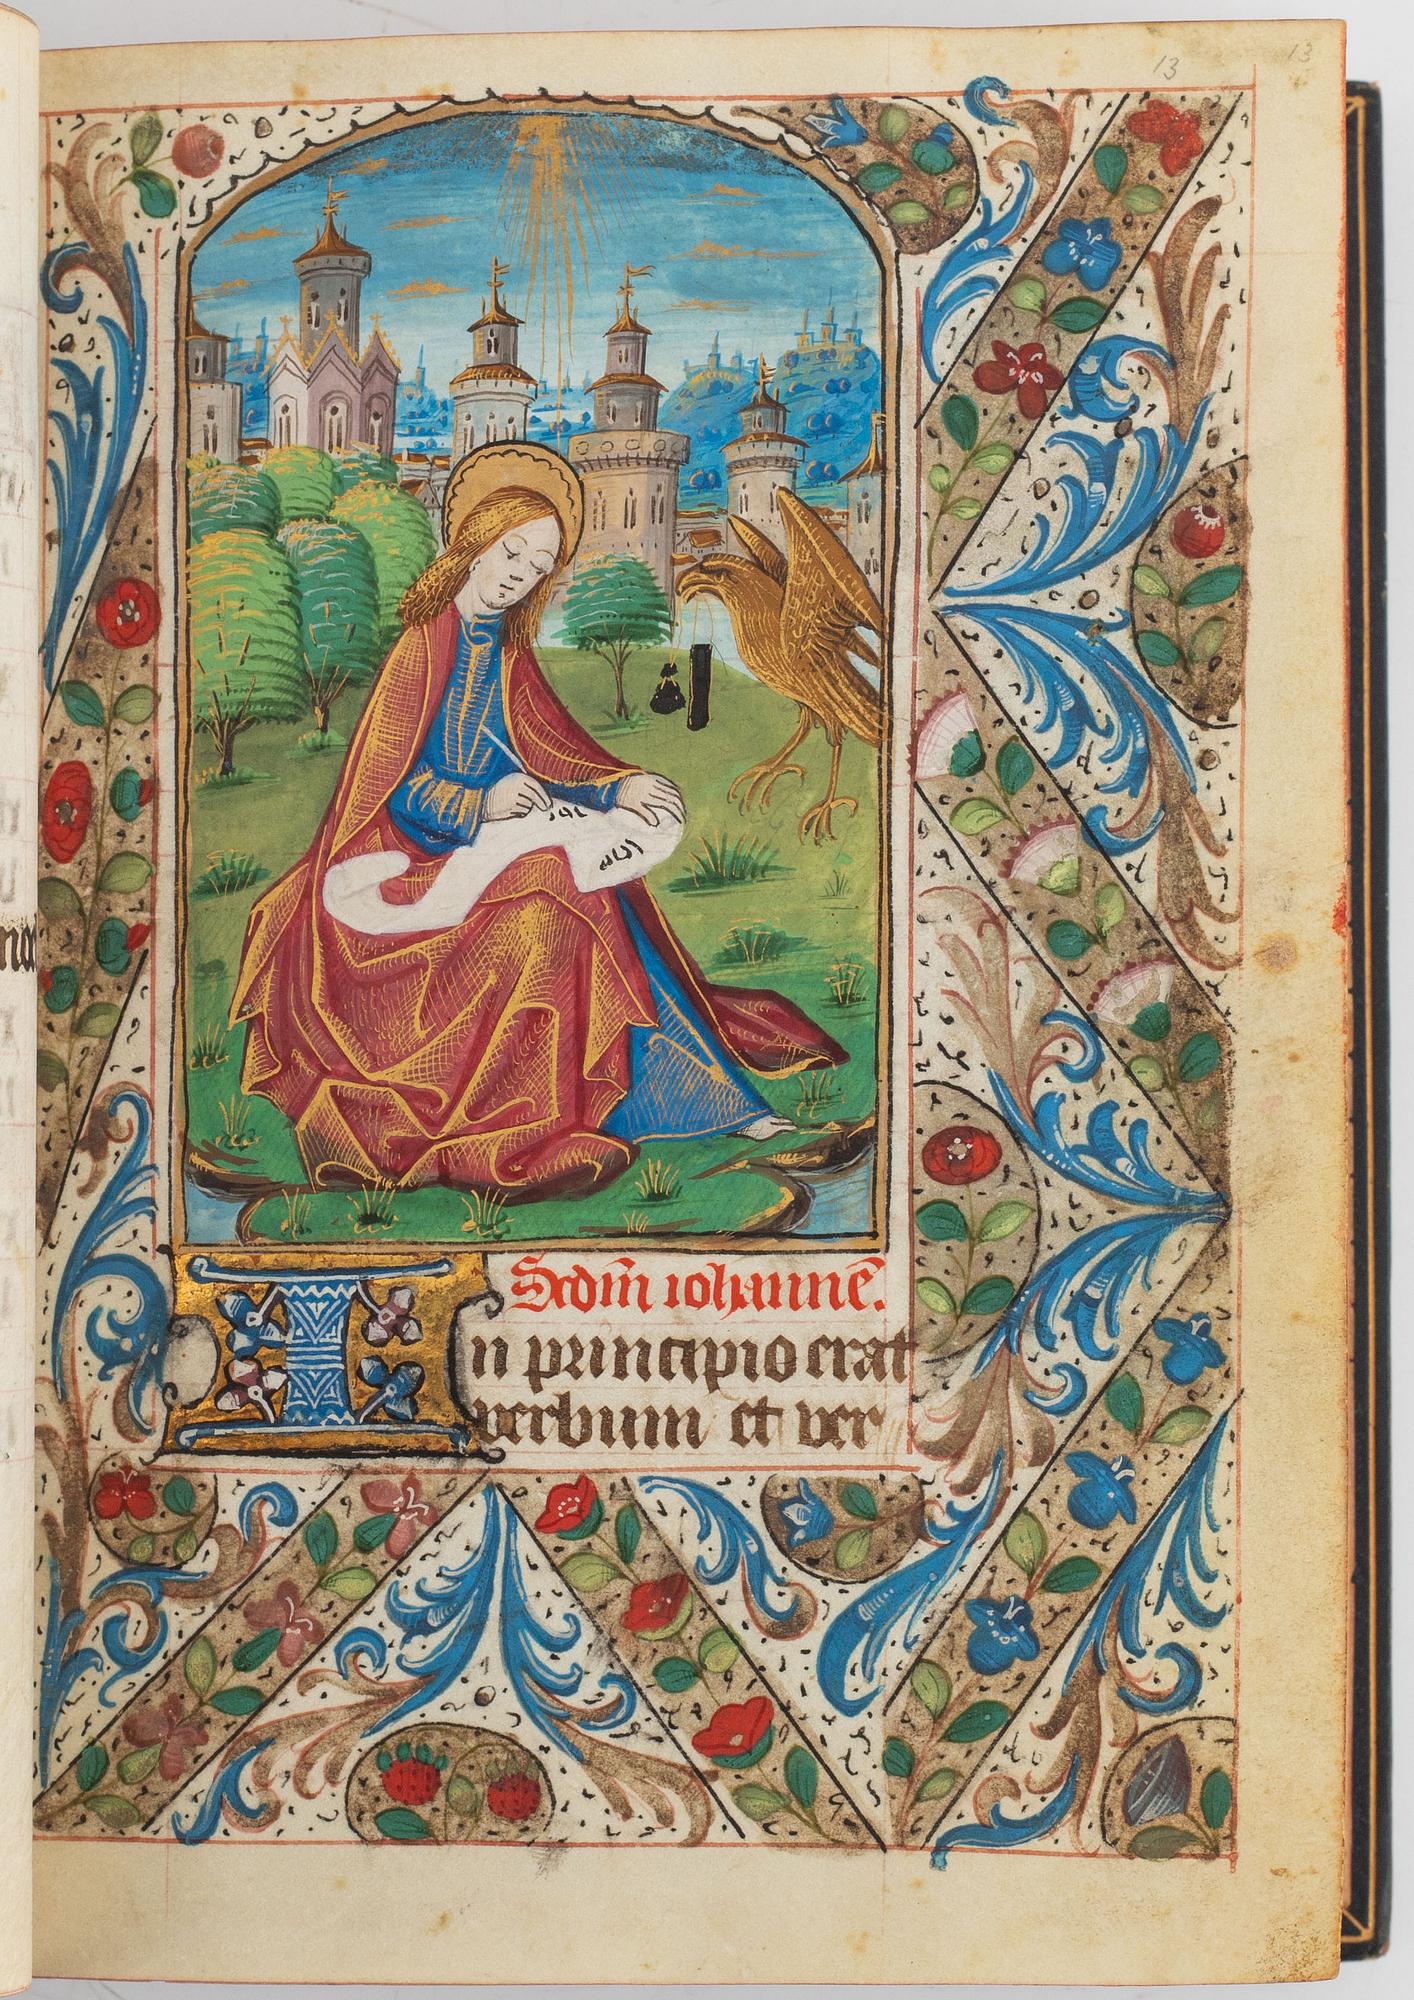 13 13
Scdm iohanne.
In principio erat
verbum et ver